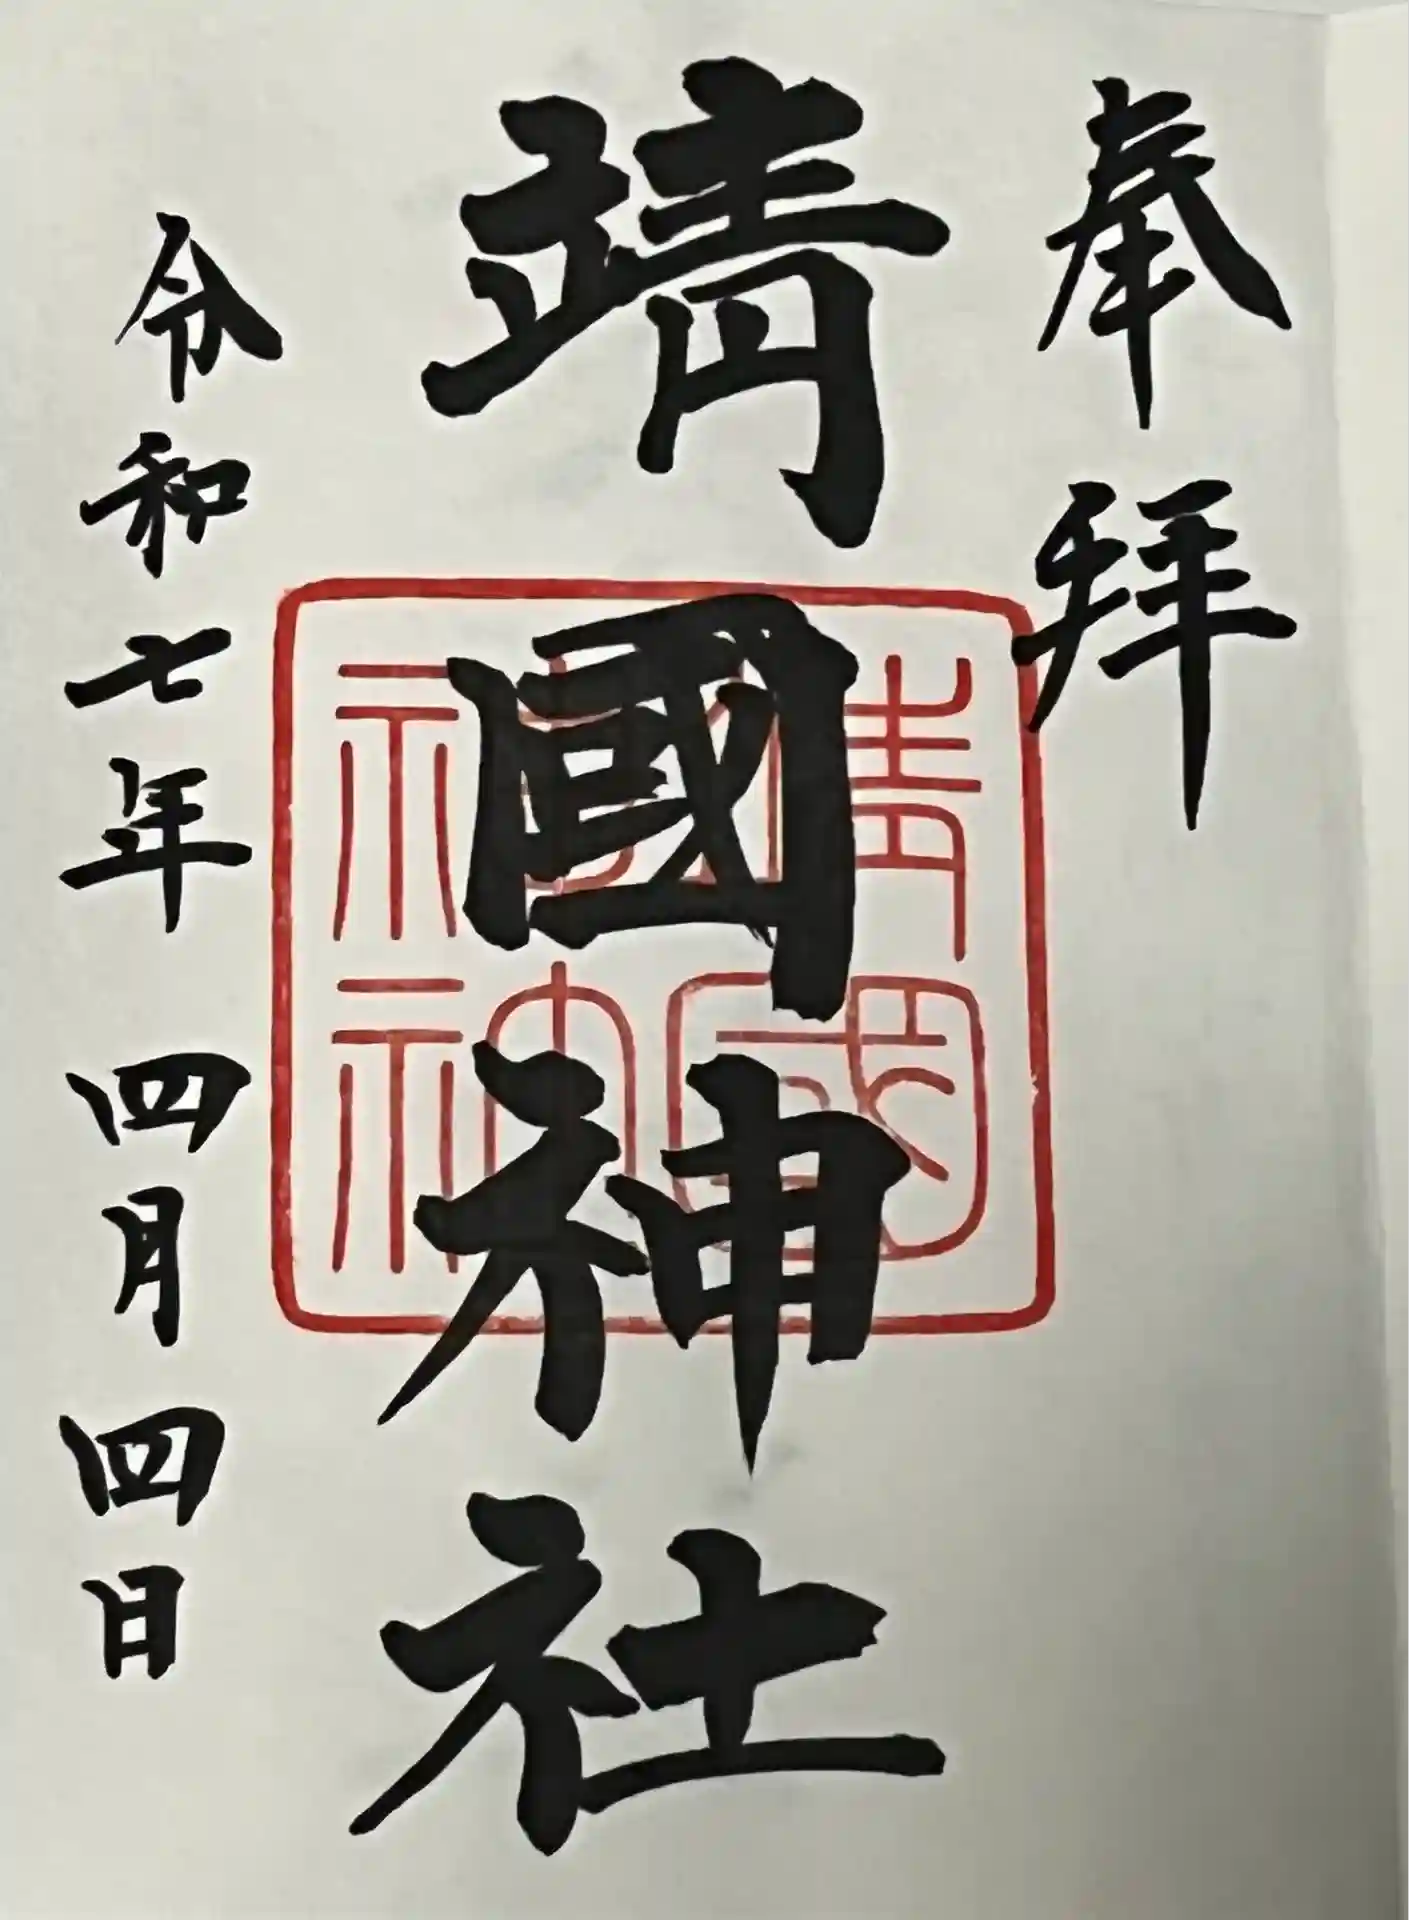 奉拝
靖國神社
靖國
神社
令和七年 四月 四日